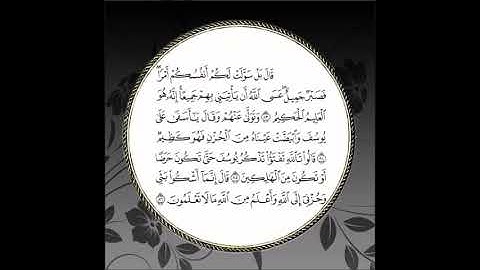 قَالَ بَلْ سَوَّلَتْ لَكُمْ أَنفُسُكُمْ أَمْرًا ۖ
فَصَبْرٌ جَمِيلٌ ۖ عَسَى اللَّهُ أَن يَأْتِيَنِي بِهِمْ جَمِيعًا ۚ إِنَّهُ هُوَ
الْعَلِيمُ الْحَكِيمُ ﴿٨٣﴾ وَتَوَلَّىٰ عَنْهُمْ وَقَالَ يَا أَسَفَىٰ عَلَىٰ
يُوسُفَ وَابْيَضَّتْ عَيْنَاهُ مِنَ الْحُزْنِ فَهُوَ كَظِيمٌ
﴿٨٤﴾ قَالُوا تَاللَّهِ تَفْتَأُ تَذْكُرُ يُوسُفَ حَتَّىٰ تَكُونَ حَرَضًا
أَوْ تَكُونَ مِنَ الْهَالِكِينَ ﴿٨٥﴾ قَالَ إِنَّمَا أَشْكُو بَثِّي
وَحُزْنِي إِلَى اللَّهِ وَأَعْلَمُ مِنَ اللَّهِ مَا لَا تَعْلَمُونَ ﴿٨٦﴾